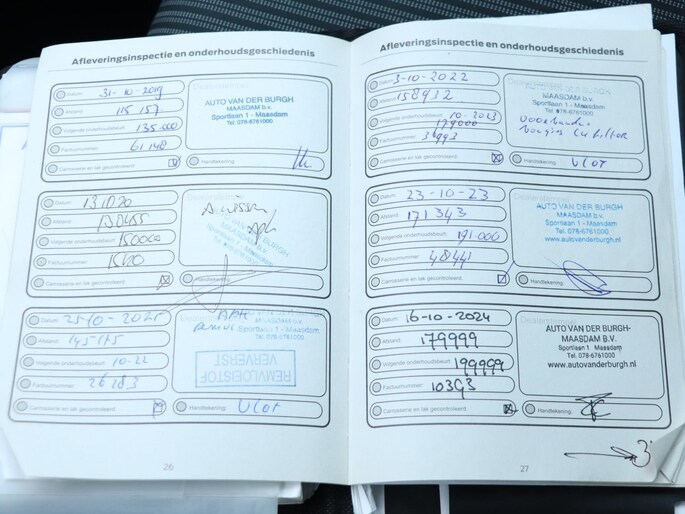 Afleveringsinspectie en onderhoudsgeschiedenis
Datum: 31-10-2019
Afstand: 115 157
Volgende onderhoudsbeurt: 135.000
Factuurnummer: 61148
Carrosserie en lak gecontroleerd:
AUTO VAN DER BURGH
MAASDAM b.v.
Sportlaan 1 - Maasdam
Tel. 078-6761000
Handtekening:
Datum:
Afstand:
Volgende onderhoudsbeurt: 150000
Factuurnummer:
Carrosserie en lak gecontroleerd:
MAASDAM b.v.
Handtekening:
Datum: 25-10-2021
Afstand: 145175
Volgende onderhoudsbeurt: 10-22
Factuurnummer: 26283
Carrosserie en lak gecontroleerd:
APK
Sportlaan 1 - Maasdam
Tel. 078-6761000
REMVLOEISTOF
VERVERST
Handtekening: Vlot
26
Afleveringsinspectie en onderhoudsgeschiedenis
Datum: 3-10-2022
Afstand: 158932
Volgende onderhoudsbeurt: 10-2023
179000
Factuurnummer:
Carrosserie en lak gecontroleerd:
AUTO VAN DER BURGH
MAASDAM b.v.
Sportlaan 1 - Maasdam
Tel. 078-6761000
Handtekening: Vlot
Datum: 23-10-23
Afstand: 171343
Volgende onderhoudsbeurt: 191.000
Factuurnummer: 48441
Carrosserie en lak gecontroleerd:
AUTO VAN DER BURGH
MAASDAM b.v.
Sportlaan 1 - Maasdam
Tel. 078-6761000
www.autovanderburgh.nl
Handtekening:
Datum: 16-10-2024
Afstand: 179999
Volgende onderhoudsbeurt: 199999
Factuurnummer: 10393
Carrosserie en lak gecontroleerd:
AUTO VAN DER BURGH-
MAASDAM B.V.
Sportlaan 1 - Maasdam
Tel. 078-6761000
www.autovanderburgh.nl
Handtekening:
27